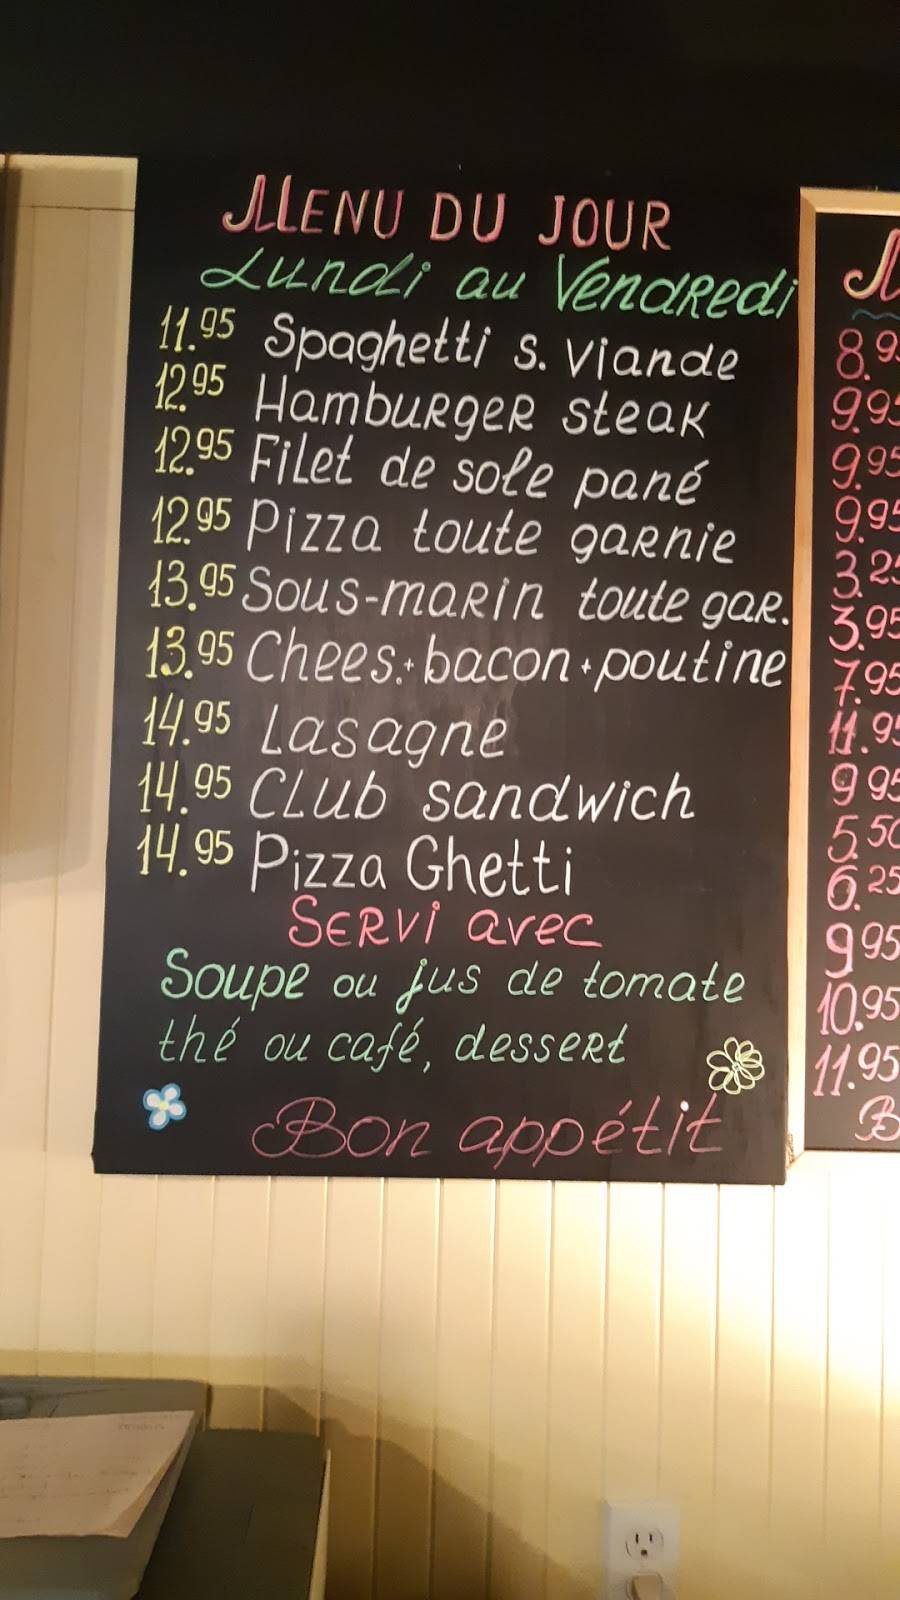 MENU DU JOUR
Lundi au Vendredi
11.95 Spaghetti s. viande
12.95 Hamburger steak
12.95 Filet de sole pané
12.95 Pizza toute garnie
13.95 Sous-marin toute gar.
13.95 Chees.+bacon+poutine
14.95 Lasagne
14.95 Club sandwich
14.95 Pizza Ghetti
Servi avec
Soupe ou jus de tomate
thé ou café, dessert
Bon appétit
8.9
9.95
9.95
9.95
3.25
3.95
7.95
11.95
9.95
5.50
6.25
9.95
10.95
11.95
B